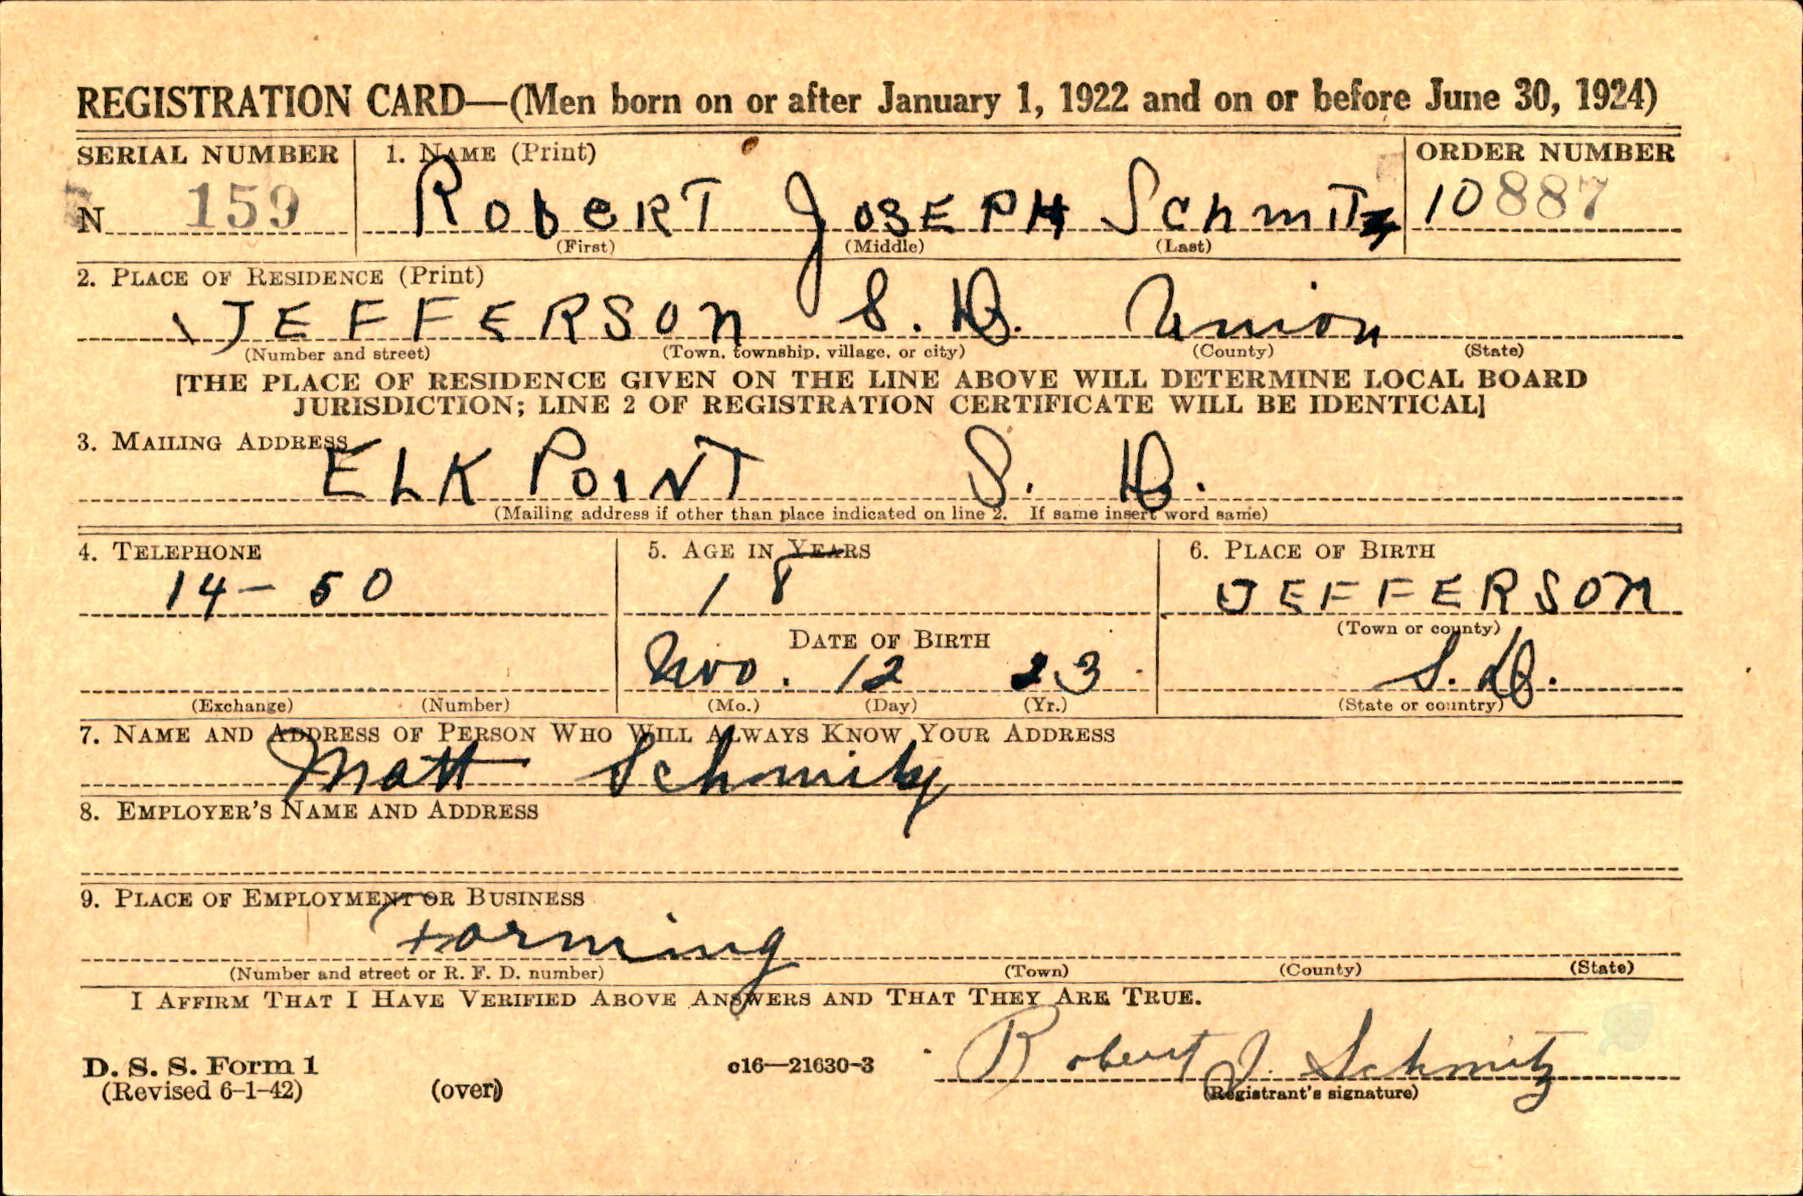 REGISTRATION CARD—(Men born on or after January 1, 1922 and on or before June 30, 1924)
SERIAL NUMBER 1. NAME (Print) ORDER NUMBER
N 159 ROBERT JOSEPH SCHMITZ 10887
(First) (Middle) (Last)
2. PLACE OF RESIDENCE (Print)
JEFFERSON S. D. Union
(Number and street) (Town, township, village, or city) (County) (State)
[THE PLACE OF RESIDENCE GIVEN ON THE LINE ABOVE WILL DETERMINE LOCAL BOARD
JURISDICTION; LINE 2 OF REGISTRATION CERTIFICATE WILL BE IDENTICAL]
3. MAILING ADDRESS
ELK POINT S. D.
(Mailing address if other than place indicated on line 2. If same insert word same)
4. TELEPHONE 5. AGE IN YEARS 6. PLACE OF BIRTH
14-50 18 JEFFERSON
(Town or county)
DATE OF BIRTH
Nov. 12 23 S. D.
(Exchange) (Number) (Mo.) (Day) (Yr.) (State or country)
7. NAME AND ADDRESS OF PERSON WHO WILL ALWAYS KNOW YOUR ADDRESS
Matt Schmitz
8. EMPLOYER'S NAME AND ADDRESS
9. PLACE OF EMPLOYMENT OR BUSINESS
Farming
(Number and street or R. F. D. number) (Town) (County) (State)
I AFFIRM THAT I HAVE VERIFIED ABOVE ANSWERS AND THAT THEY ARE TRUE.
D. S. S. Form 1 c16—21630-3 Robert J. Schmitz
(Revised 6-1-42) (over) (Registrant's signature)